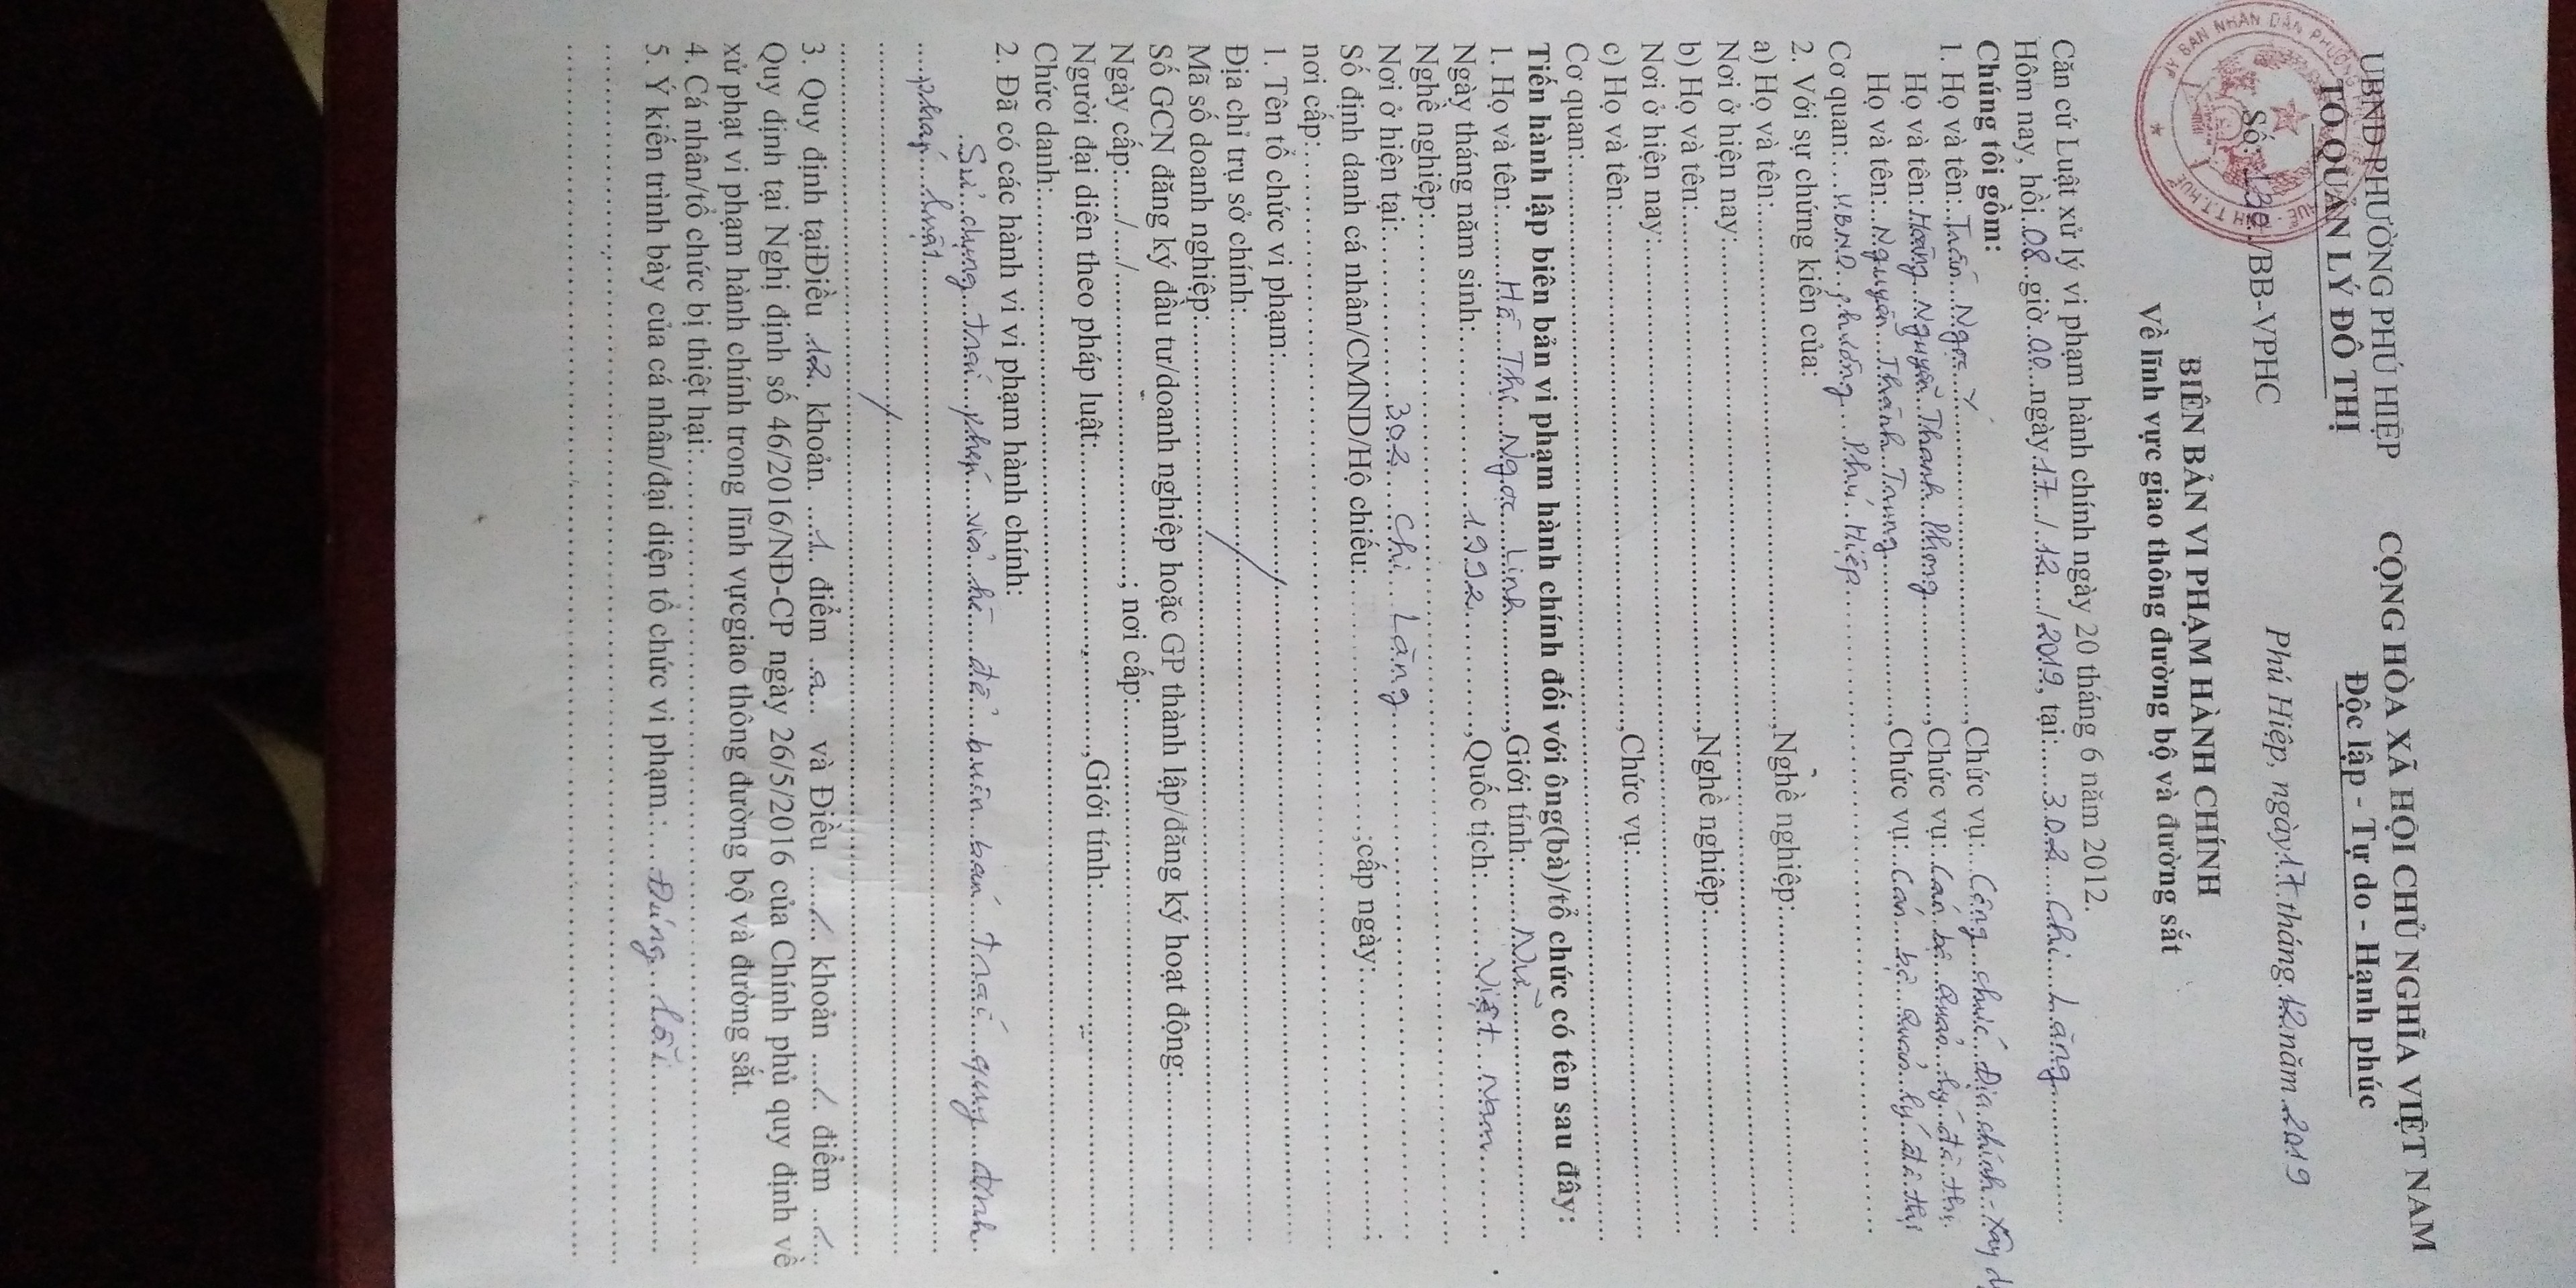 UBND PHƯỜNG PHÚ HIỆP
TỔ QUẢN LÝ ĐÔ THỊ
Số: /BB-VPHC
CỘNG HÒA XÃ HỘI CHỦ NGHĨA VIỆT NAM
Độc lập - Tự do - Hạnh phúc
Phú Hiệp, ngày 17 tháng 12 năm 2019
BIÊN BẢN VI PHẠM HÀNH CHÍNH
Về lĩnh vực giao thông đường bộ và đường sắt
Căn cứ Luật xử lý vi phạm hành chính ngày 20 tháng 6 năm 2012.
Hôm nay, hồi 08 giờ 00 ngày 17 / 12 / 2019, tại: 302 Chi Lăng
Chúng tôi gồm:
1. Họ và tên: Trần Ngọc Ý, Chức vụ: Công chức Địa chính - Xây
Họ và tên: Hoàng Nguyễn Thanh Phong, Chức vụ: Cán bộ quản lý đô thị
Họ và tên: Nguyễn Thành Trung, Chức vụ: Cán bộ quản lý đô thị
Cơ quan: UBND phường Phú Hiệp
2. Với sự chứng kiến của:
a) Họ và tên:, Nghề nghiệp:
Nơi ở hiện nay:
b) Họ và tên:, Nghề nghiệp:
Nơi ở hiện nay:
c) Họ và tên:, Chức vụ:
Cơ quan:
Tiến hành lập biên bản vi phạm hành chính đối với ông(bà)/tổ chức có tên sau đây:
1. Họ và tên: Hồ Thị Ngọc Linh, Giới tính: Nữ
Ngày tháng năm sinh: 1992, Quốc tịch: Việt Nam
Nghề nghiệp:
Nơi ở hiện tại: 302 Chi Lăng
Số định danh cá nhân/CMND/Hộ chiếu: ;cấp ngày:
nơi cấp:
1. Tên tổ chức vi phạm:
Địa chỉ trụ sở chính:
Mã số doanh nghiệp:
Số GCN đăng ký đầu tư/doanh nghiệp hoặc GP thành lập/đăng ký hoạt động:
Ngày cấp: / / ; nơi cấp:
Người đại diện theo pháp luật:, Giới tính:
Chức danh:
2. Đã có các hành vi vi phạm hành chính:
Sử dụng trái phép vỉa hè để buôn bán trái quy định
pháp luật
3. Quy định tạiĐiều 12 khoản 1 điểm a và Điều / khoản / điểm /
Quy định tại Nghị định số 46/2016/NĐ-CP ngày 26/5/2016 của Chính phủ quy định về
xử phạt vi phạm hành chính trong lĩnh vựcgiao thông đường bộ và đường sắt.
4. Cá nhân/tổ chức bị thiệt hại:
5. Ý kiến trình bày của cá nhân/đại diện tổ chức vi phạm: Đúng lỗi